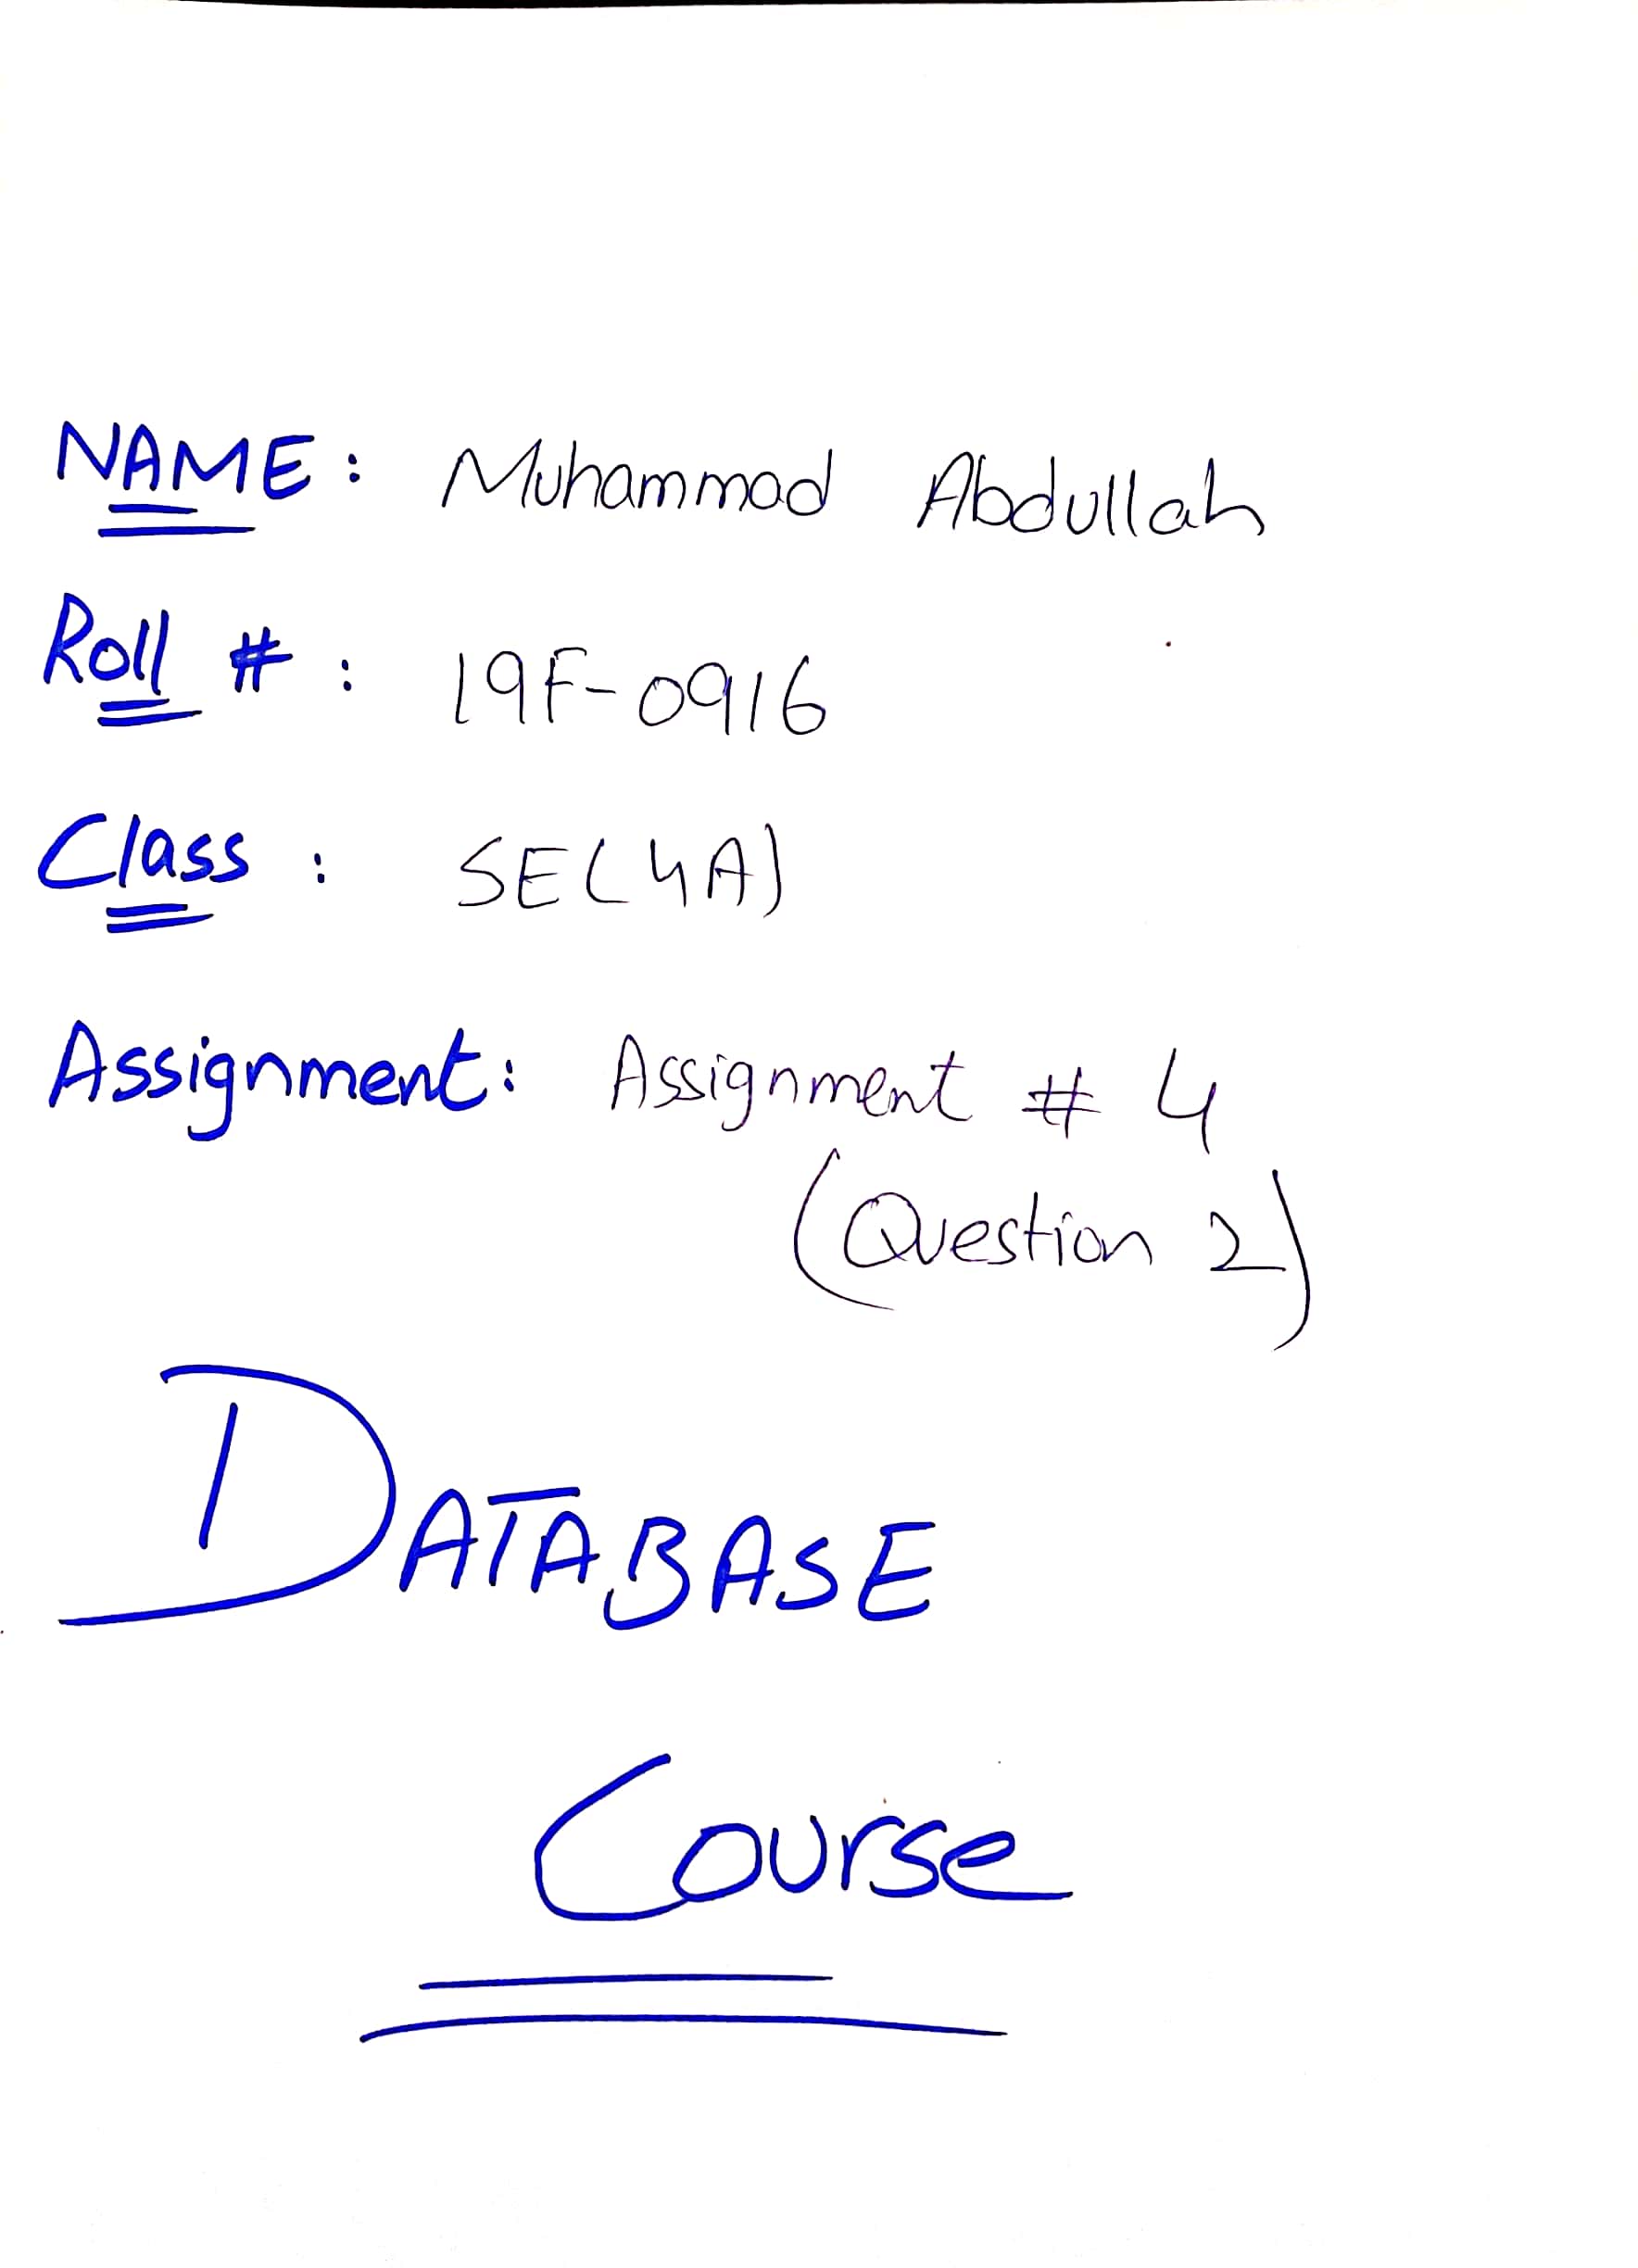 NAME: Muhammad Abdullah
Roll #: 19F-0916
Class: SE(4A)
Assignment: Assignment # 4
(Question 2)
DATABASE
Course